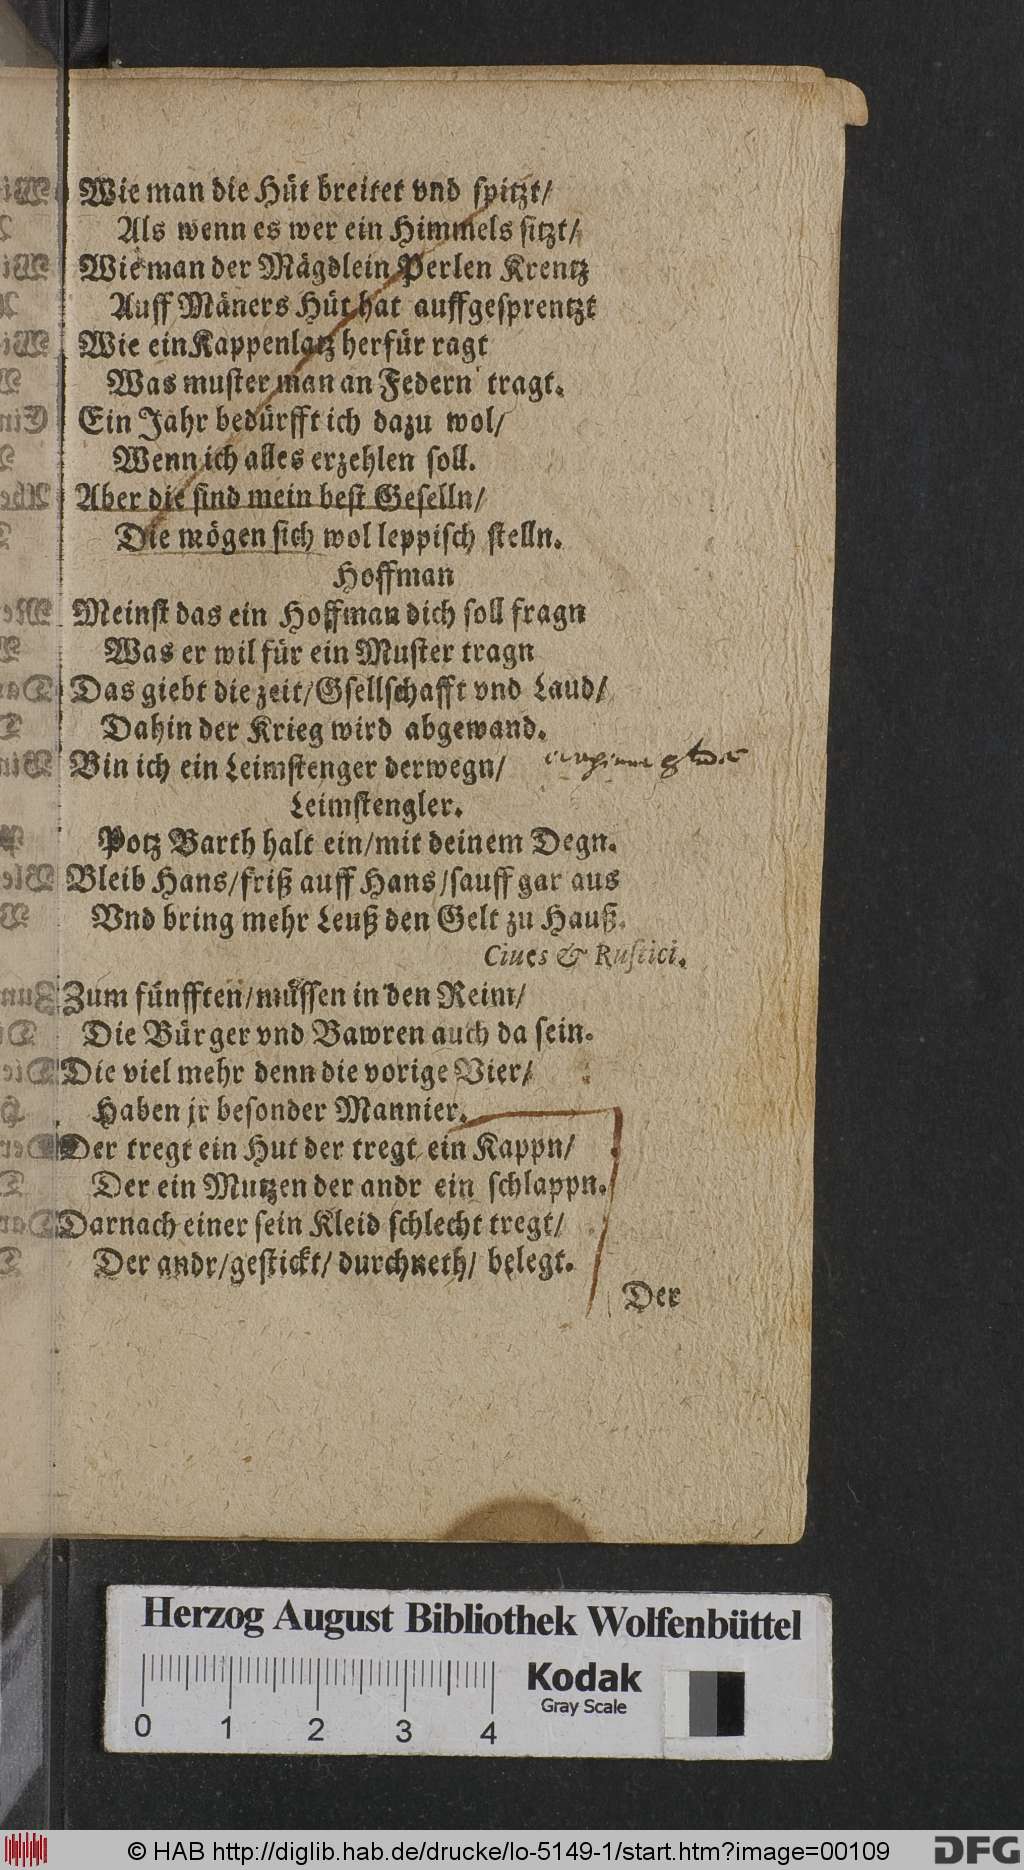 Wie man die Hüt breitet vnd spitzt/
Als wenn es wer ein Himmels sitzt/
Wie man der Mägdlein Perlen Krentz
Auff Mäners Hüt hat auffgesprentzt
Wie ein Kappenlatz herfür ragt
Was muster man an Federn tragt.
Ein Jahr bedürfft ich dazu wol/
Wenn ich alles erzehlen soll.
Aber die sind mein best Geselln/
Die mögen sich wol leppisch stelln.
Hoffman
Meinst das ein Hoffman dich soll fragn
Was er wil für ein Muster tragn
Das giebt die zeit/Gsellschafft vnd Laud/
Dahin der Krieg wird abgewand.
Bin ich ein Leimstenger derwegn/
Leimstengler.
Potz Barth halt ein/mit deinem Degn.
Bleib Hans/friß auff Hans/sauff gar aus
Vnd bring mehr Leuß den Gelt zu Hauß.
Ciues & Rustici.
Zum fünfften/müssen in den Reim/
Die Bürger vnd Bawren auch da sein.
Die viel mehr denn die vorige Vier/
Haben jr besonder Mannier.
Der tregt ein Hut der tregt ein Kappn/
Der ein Mutzen der andr ein schlappn.
Darnach einer sein Kleid schlecht tregt/
Der andr/gestickt/durchneth/belegt.
Der
Herzog August Bibliothek Wolfenbüttel
Kodak
Gray Scale
0 1 2 3 4
© HAB http://diglib.hab.de/drucke/lo-5149-1/start.htm?image=00109
DFG